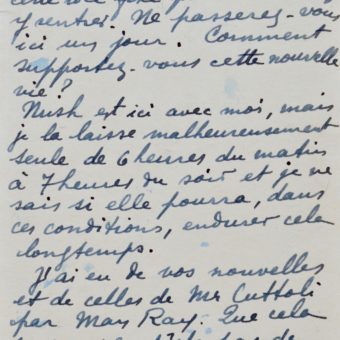 y rentrer. Ne passerez-vous
ici un jour. Comment
supportez-vous cette nouvelle
vie?
Nush est ici avec moi, mais
je la laisse malheureusement
seule de 6 heures du matin
à 7 heures du soir et je ne
sais si elle pourra, dans
ces conditions, endurer cela
longtemps.
J'ai eu de vos nouvelles
et de celles de Mr Cuttoli
par Man Ray. Que cela